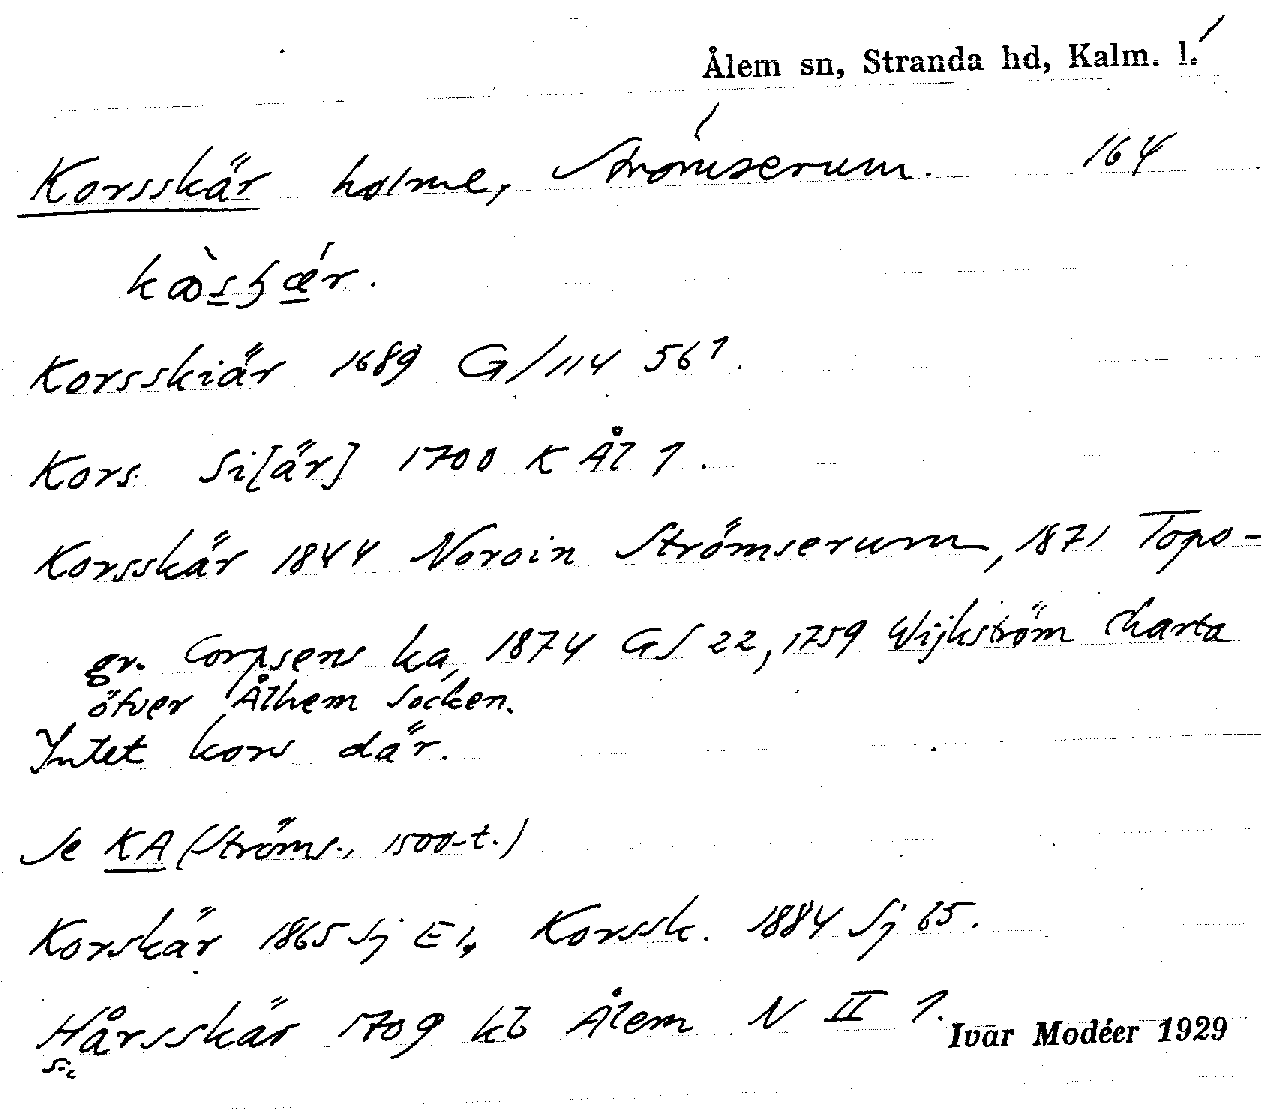 Ålem sn, Stranda hd, Kalm. l.
Korsskär holme, Strömserum. 164
Korsskiär 1689 G/114 56¹.
Kors Si[är] 1700 K Ål 1.
Korsskär 1844 Noroin Strömserum, 1871 Topo-
gr. Corpsens ka, 1874 GS 22, 1759 Wijkström Charta
öfver Ålhem Socken.
Intet kors där.
Se KA (Ströms., 1500-t.)
Korskär 1865 Sj E 1, Korssk. 1884 Sj 65.
Hårsskär 1709 kb Ålem N II 1.
sic
Ivar Modéer 1929